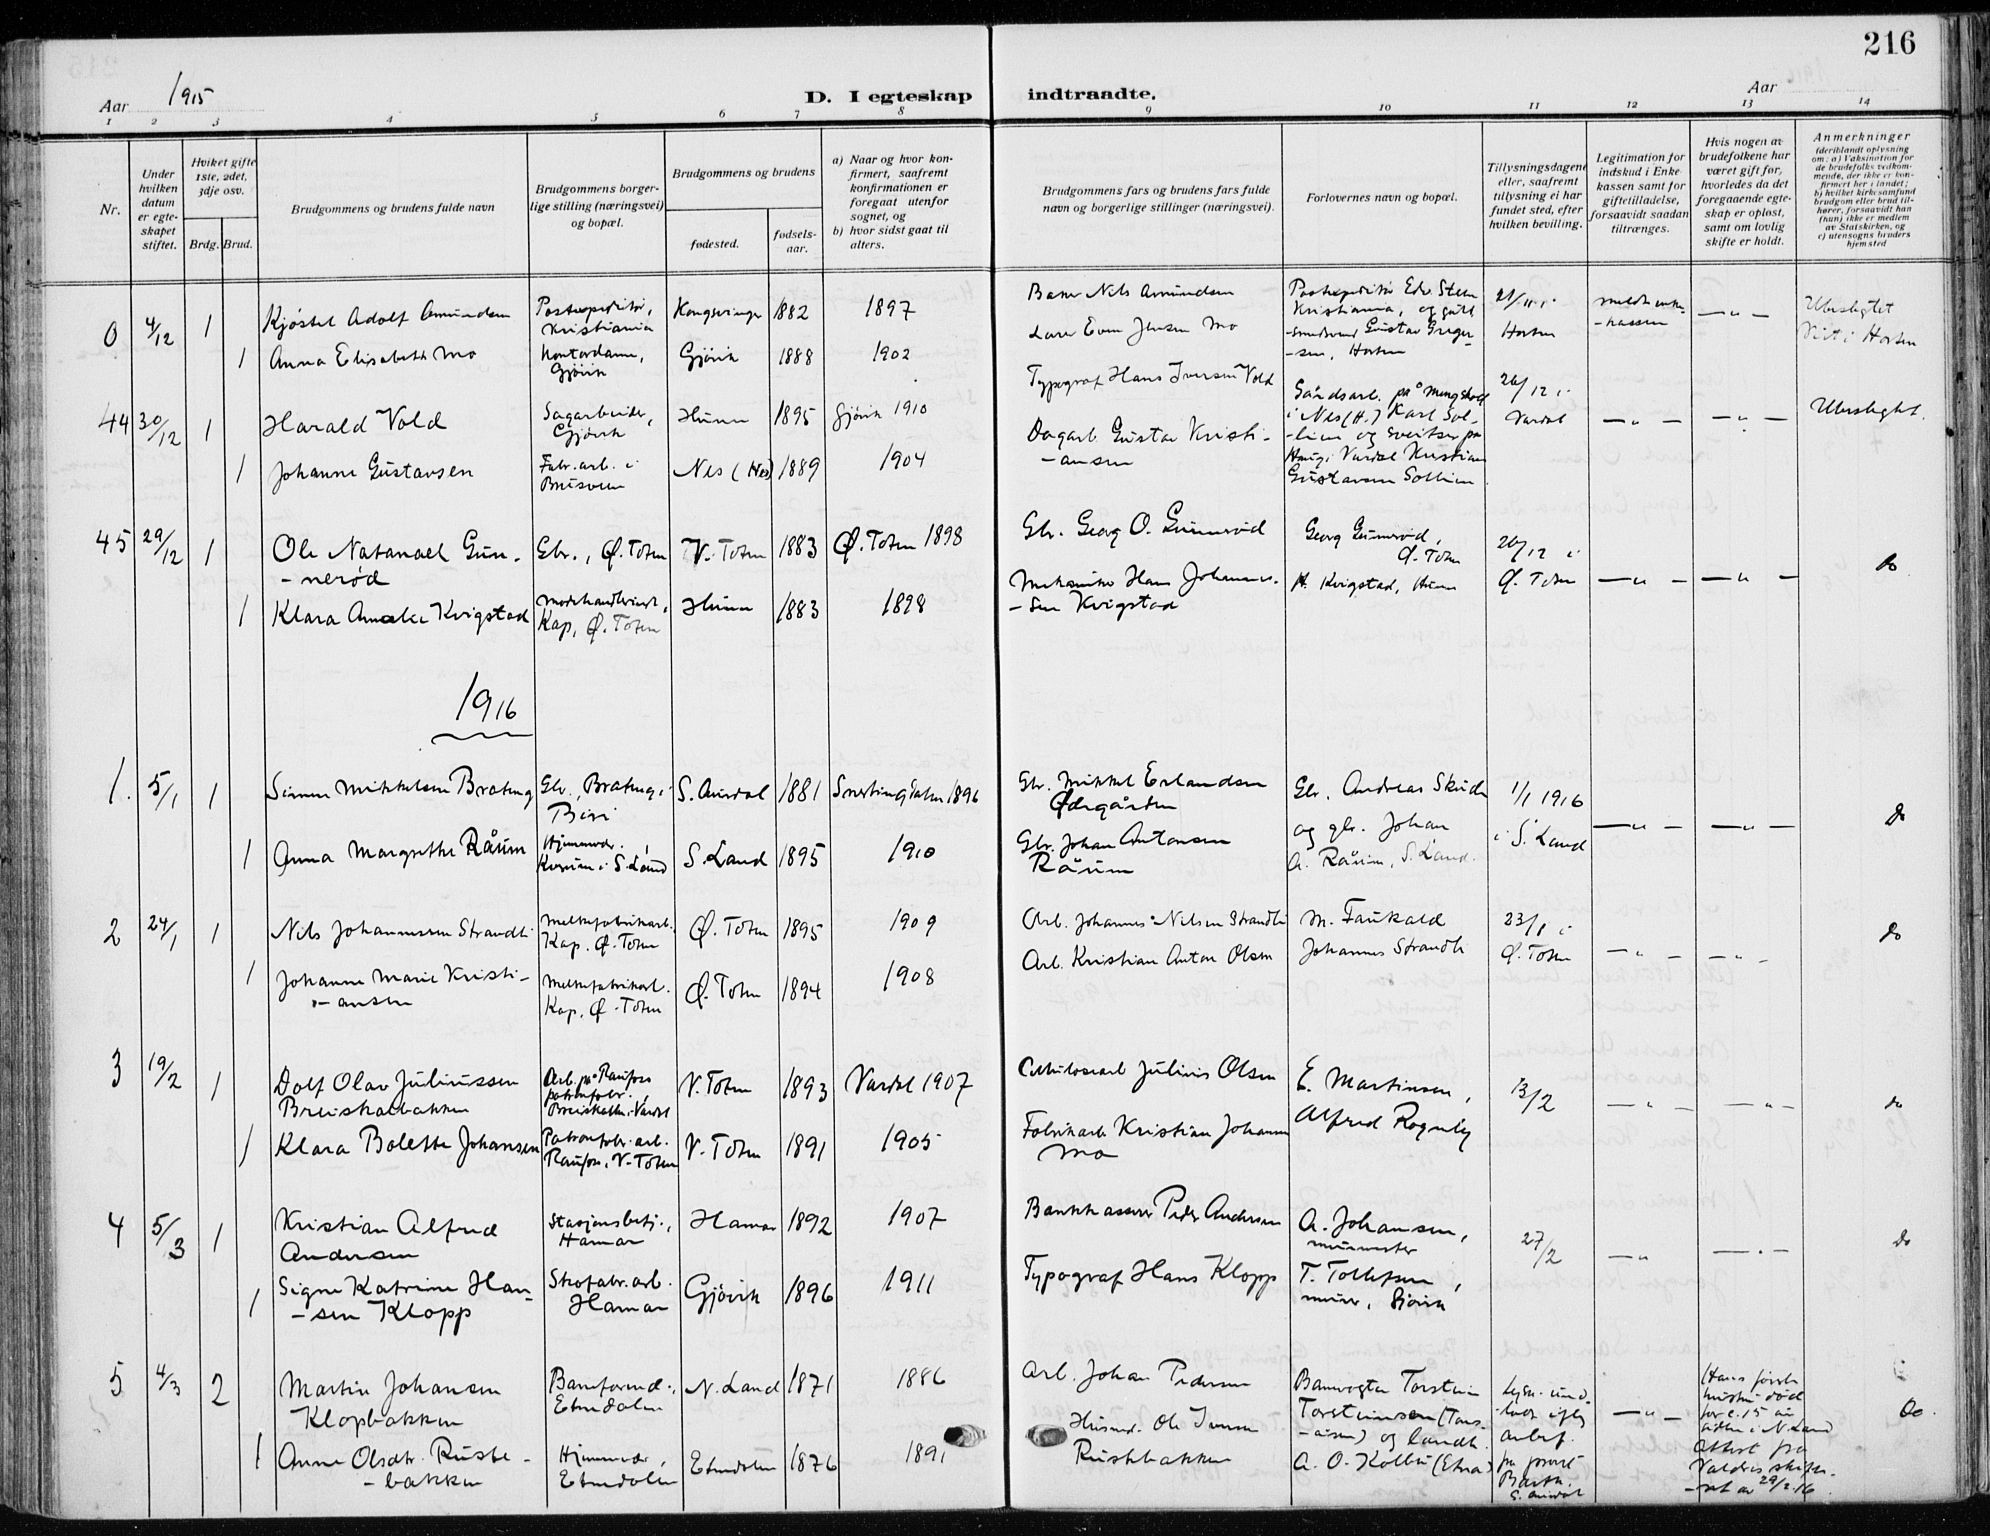 216
Aar 1915
D. I egteskap indtraadte.
Aar
1 2 3 4 5 6 7 8 9 10 11 12 13 14
Nr.
Under hvilken datum er egteskapet stiftet.
Hviket gifte 1ste, 2det, 3dje osv.
Brdg. Brud.
Brudgommens og brudens fulde navn
Brudgommens borgerlige stilling (næringsvei) og bopæl.
Brudgommens og brudens
fødested.
fødsels-aar.
a) Naar og hvor konfirmert, saafremt konfirmationen er foregaat utenfor sognet, og
b) hvor sidst gaat til alters.
Brudgommens fars og brudens fars fulde navn og borgerlige stillinger (næringsvei).
Forlovernes navn og bopæl.
Tillysningsdagene eller, saafremt tillysning ei har fundet sted, efter hvilken bevilling.
Legitimation for indskud i Enkekassen samt for giftetilladelse, forsaavidt saadan tiltrænges.
Hvis nogen av brudefolkene har været gift før, hvorledes da det foregaaende egteskap er opløst, samt om lovlig skifte er holdt.
Anmerkninger (deriblandt oplysning om: a) Vaksination for de brudefolks vedkommende, der ikke er konfirmert her i landet; b) hvilket kirkesamfund brudgom eller brud tilhører, forsaavidt han (hun) ikke er medlem av Statskirken, og c) utensogns bruders hjemsted
0 4/12 1 Kjøstel Adolf Amundsen Postexpeditør, Kristiania Kongsvinger 1882 1897 Nils Amundsen Postexpeditør Edv. Steen Kristiania, og Gustav Gregersen, Horten Horten Ubesligtet Viet i Horten
1 Anna Elisabeth Mo Kontordame, Gjøvik Gjøvik 1888 1902 Lærer Even Jensen Mo
44 30/12 1 Harald Vold Sagarbeider, Gjøvik Hunn 1895 Gjøvik 1910 Typograf Hans Iversen Vold Gårdsarb. på i Nes (H.) Karl Sollien og sveitser på i Vardal Kristian Gustavsen Sollien 26/12 i Vardal — " — — " — Ubesligtet.
1 Johanne Gustavsen Fabr. arb. i Nes (Hed) 1889 1904 Dagarb. Gustav Kristiansen
45 29/12 1 Ole Natanael Gunnerød Gbr., Ø. Toten V. Toten 1883 Ø. Toten 1898 Gbr. Georg O. Gunnerød Georg Gunnerød, Ø. Toten 26/12 i Ø. Toten — " — — " — do
1 Klara Amalie Kvigstad Modehandlerinde, Kap, Ø. Toten Hunn 1883 1898 Mekaniker Hans Johannessen Kvigstad H. Kvigstad, Hunn
1916
1. 5/1 1 Simen Mikkelsen Brateng Gbr., Brateng i Biri S. Aurdal 1881 Snertingdalen 1896 Gbr. Mikkel Erlandsen Ødegården Gbr. Andreas Skinde og gbr. Johan A. Råum, S. Land. 1/1 1916 i S. Land — " — — " — do
1 Anna Margrethe Råum Hjemmev. i S. Land S. Land 1895 1910 Gbr. Johan Antonsen Råum
2 24/1 1 Nils Johannessen Strandli Melkefabrikarb. Kap. Ø. Toten Ø. Toten 1895 1909 Arb. Johannes Nilsen Strandli M. Faukald 23/1 i Ø. Toten — " — — " — do
1 Johanne Marie Kristiansen Melkefabrikarb. Kap, Ø. Toten Ø. Toten 1894 1908 Arb. Kristian Anton Olsen Johannes Strandli
3 19/2 1 Dolf Olav Juliussen Breiskalbakken Arb. på Raufoss patronfabr., Breiskallen i Vardal V. Toten 1893 Vardal 1907 Cellulosearb. Julius Olsen E. Martinsen, 13/2 — " — — " — do
1 Klara Bolette Johansen Patronfabr. arb. Raufoss, V. Toten V. Toten 1891 1905 Fabrikarb. Kristian Johansen Mo Alfred Rognly
4 5/3 1 Kristian Alfred Andersen Stasjonsbetj., Hamar Hamar 1892 1907 Bankkasserer Peder Andersen A. Johansen, murmester 27/2 — " — — " — do
1 Signe Katrine Hansen Klopp Skofabr. arb. Hamar Gjøvik 1896 1911 Typograf Hans Klopp T. Tollefsen, murer, Gjøvik
5 4/3 2 Martin Johansen Klopbakken Baneformd., Etnedalen N. Land 1871 1886 Arb. Johan Pedersen Banevogter Torstein Torsteinsen (Tonsaasen) og landh. A. O. Kollin (Etna) Lysn. undladt efter anbef. fra provst Barth. S. Aurdal — " — Hans første hustru død for c. 15 år siden i N. Land Attest fra Valdres skifteret av 29/2 16 Do.
1 Anne Olsdtr. Rustebakken Hjemmev., Etnedalen Etnedalen 1876 1891 Husmd. Ole Iversen Rustebakken